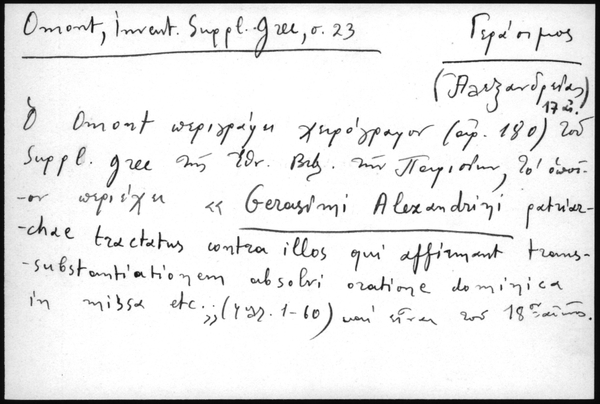 Omont, Invent. Suppl. Grec, σ. 23
Γεράσιμος
(Ἀλεξανδρείας)
17 αἰ.
Ὁ Omont περιγράφει χειρόγραφον (ἀρ. 180) τοῦ
Suppl. grec τῆς Ἐθν. Βιβ. τῶν Παρισίων, τὸ ὁποῖ-
-ον περιέχει « Gerasimi Alexandrini patriar-
-chae tractatus contra illos qui affirmant trans-
-substantiationem absolvi oratione dominica
in missa etc.» (φφ. 1-60) καὶ εἶναι τοῦ 18ου αἰῶνος.